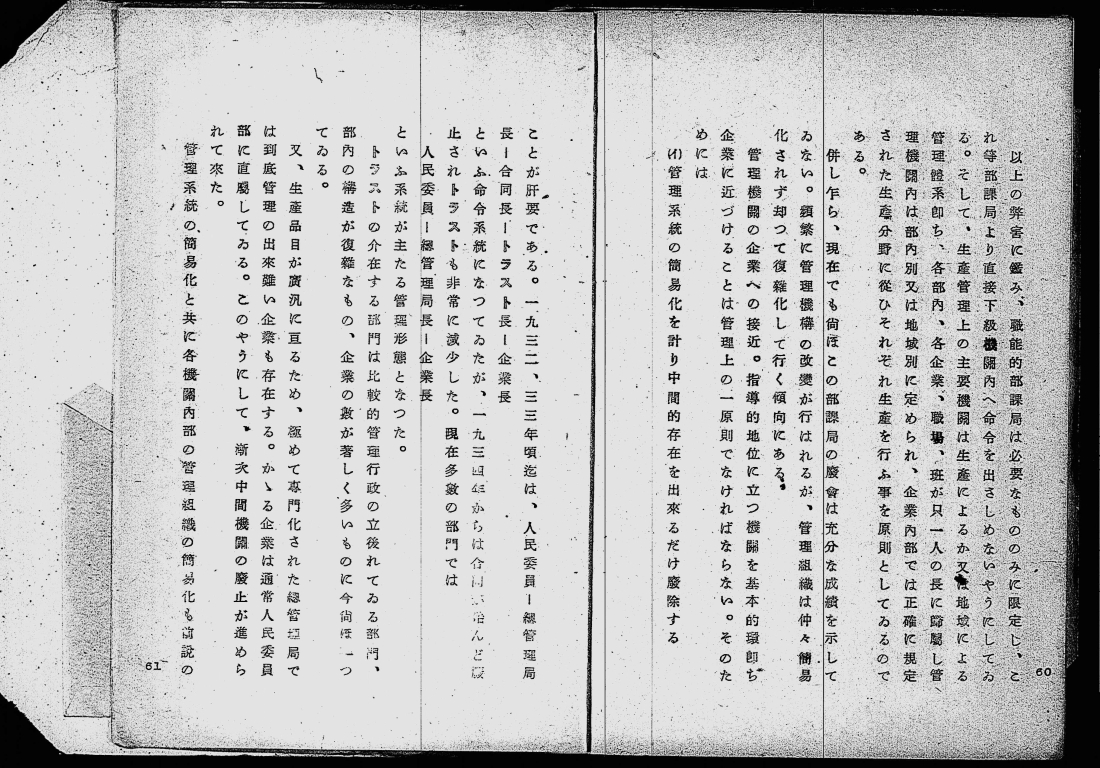 以上の弊害に鑑み、職能的部課局は必要なもののみに限定し、こ
れ等部課局より直接下級機關內へ命令を出さしめないやうにしてゐ
る。そして、生產管理上の主要機關は生產によるか又は地域による
管理體系卽ち、各部內、各企業、職場、班が只一人の長に歸屬し管
理機關內は部內別又は地域別に定められ、企業內部では正確に規定
された生產分野に從ひそれぞれ生產を行ふ事を原則としてゐるので
ある。
倂し乍ら、現在でも尙ほこの部課局の廢會は充分な成績を示して
ゐない。頻繁に管理機構の改變が行はれるが、管理組織は仲々簡易
化されず却つて復雜化して行く傾向にある。
管理機關の企業への接近。指導的地位に立つ機關を基本的環卽ち
企業に近づけることは管理上の一原則でなければならない。そのた
めには
(イ)管理系統の簡易化を計り中間的存在を出來るだけ廢除する
60
ことが肝要である。一九三二、三三年頃迄は、人民委員ー總管理局
長ー合同長ートラスト長ー企業長
といふ命令系統になつてゐたが、一九三四年からは合同が殆んど廢
止されトラストも非常に減少した。現在多數の部門では
人民委員ー總管理局長ー企業長
といふ系統が主たる管理形態となつた。
トラストの介在する部門は比較的管理行政の立後れてゐる部門、
部內の構造が復雜なもの、企業の數が著しく多いものに今尙ほ一つ
てゐる。
又、生產品目が廣汎に亘るため、極めて專門化された總管理局で
は到底管理の出來難い企業も存在する。かゝる企業は通常人民委員
部に直屬してゐる。このやうにして、漸次中間機關の廢止が進めら
れて來た。
管理系統の簡易化と共に各機關內部の管理組織の簡易化も前說の
61